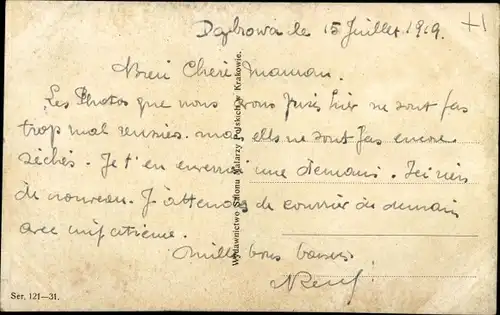 Dąbrowa le 15 Juillet 1919.
Bien Cheré Maman.
Les Photos que nous avons prises hier ne sont pas
trop mal reussies. mais elles ne sont pas encore
séchés. Je t'en enverrai une demain. Ici rien
de nouveau. J'attends de courrier de demain
avec impatience.
Mille bons baisers
Wydawnictwo Salonu Malarzy Polskich w Krakowie.
Ser. 121—31.